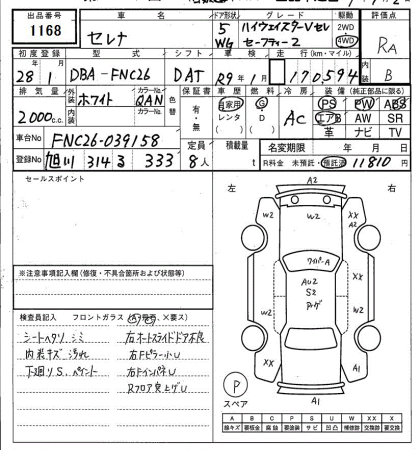 出品番号 車名 ドア形状 グレード 駆動 評価点
1168 セレナ 5 WG ハイウェイスターVセレ セーフティー2 2WD 4WD RA
初度登録 型式 シフト 車検 走行(km・マイル) 内装
28 1 DBA-FNC26 DAT R9年 1月 170594 B
排気量 外装 カラーNo. 色替 保証書 車歴 燃料 冷房 装備(純正部品に限る)
2000c.c. ホワイト QAN 有・無 自家用 レンタ G D AC PS PW ABS
カラーNo. エアB AW SR
革 ナビ TV
車台No FNC26-039158 定員 積載量 名変期限 年 月 日
登録No 旭川 314 ろ 333 8人 t R料金 未預託・預託済 11810 円
セールスポイント
左 右
A2
W2 W2 XX
A2
ワイパーA
W2 AU2 XX
S2
XX W2 XX
A1
P
スペア A1
※注意事項記入欄(修復・不具合箇所および状態等)
検査員記入 フロントガラス
シートヘタリ シミ 右オートスライドドア不良
内装キズ 汚れ 右Fピラー小U
下廻りS、ペイント
Rフロア突上げU
A B C P S U W X XX X
線キズ 要板金 腐蝕 要塗装 サビ 凹凸 補修跡 要交換 交換済 要交換